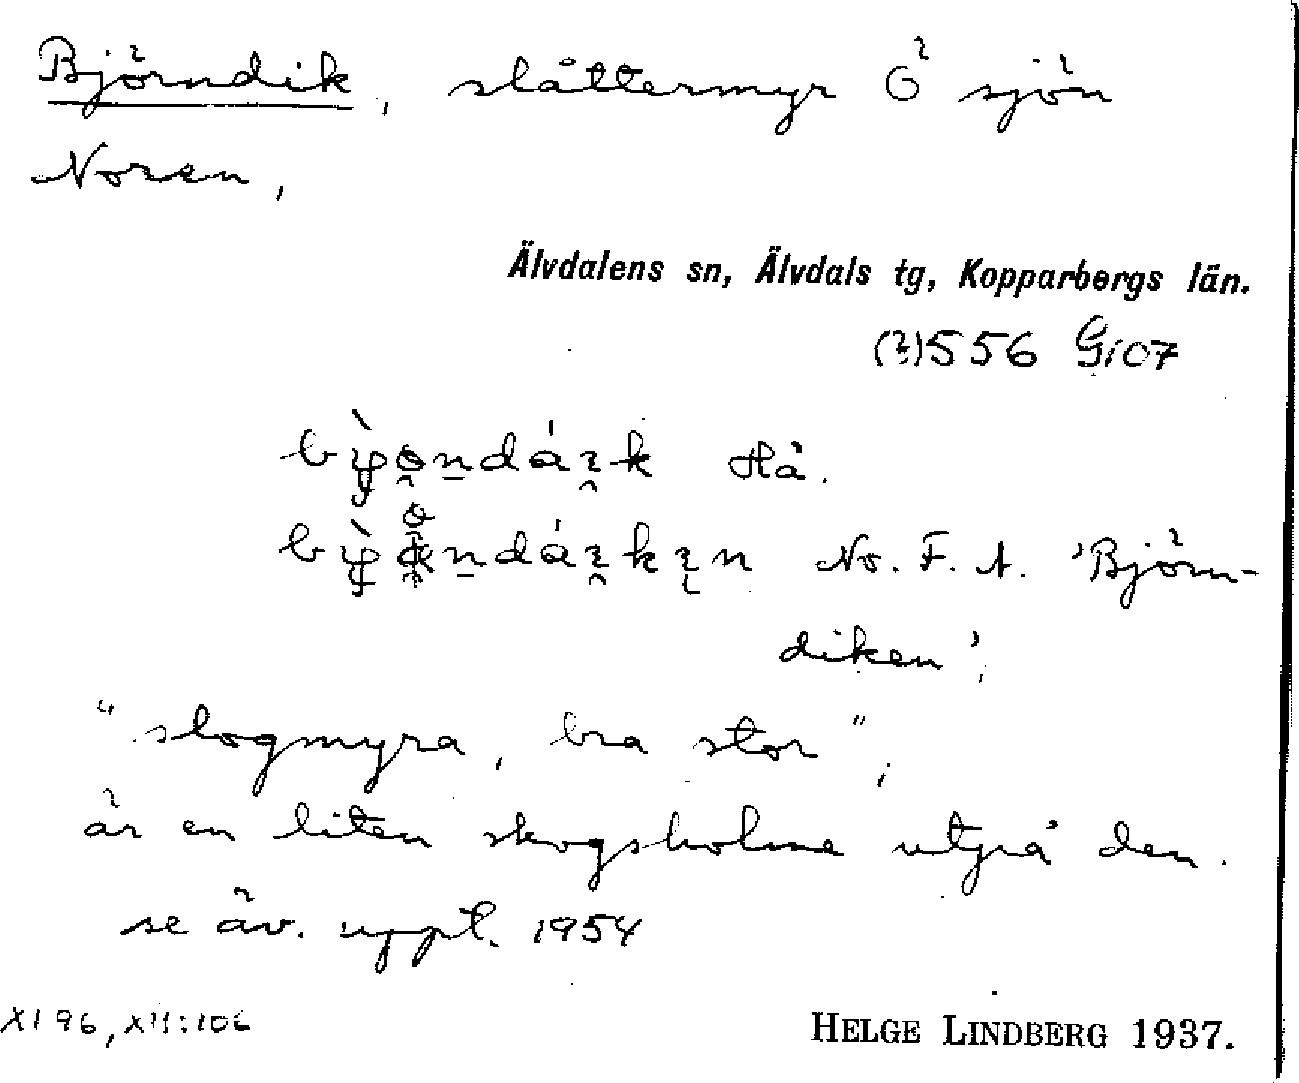 Björndik, slåttermyr Ö sjön
Noren,
Älvdalens sn, Älvdals tg, Kopparbergs län.
(?)556 Gi07
Hå.
No. F. A. 'Björn-
diken';
"slogmyra, bra stor";
är en liten skogsholme utpå den.
se äv. uppt. 1954
XI 96, XII:106
HELGE LINDBERG 1937.